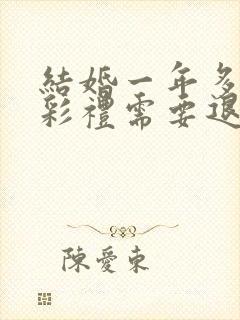 結婚一年多
彩禮需要退
陳愛東